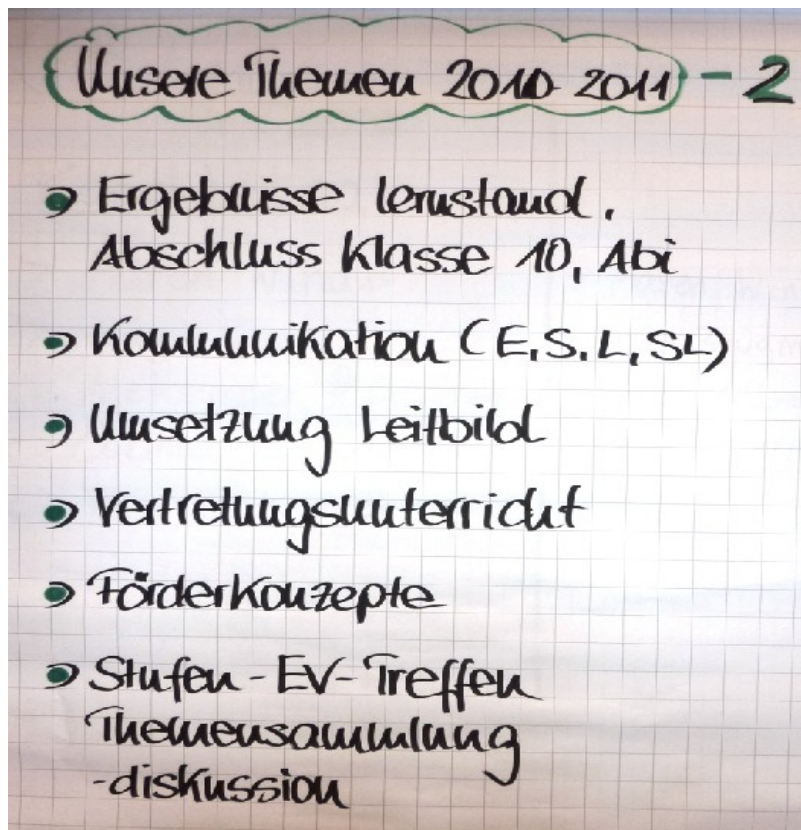 Unsere Themen 2010 2011 - 2
Ergebnisse Lernstand,
Abschluss Klasse 10, Abi
Kommunikation (E, S, L, SL)
Umsetzung Leitbild
Vertretungsunterricht
Förderkonzepte
Stufen-EV-Treffen
Themensammlung
-diskussion